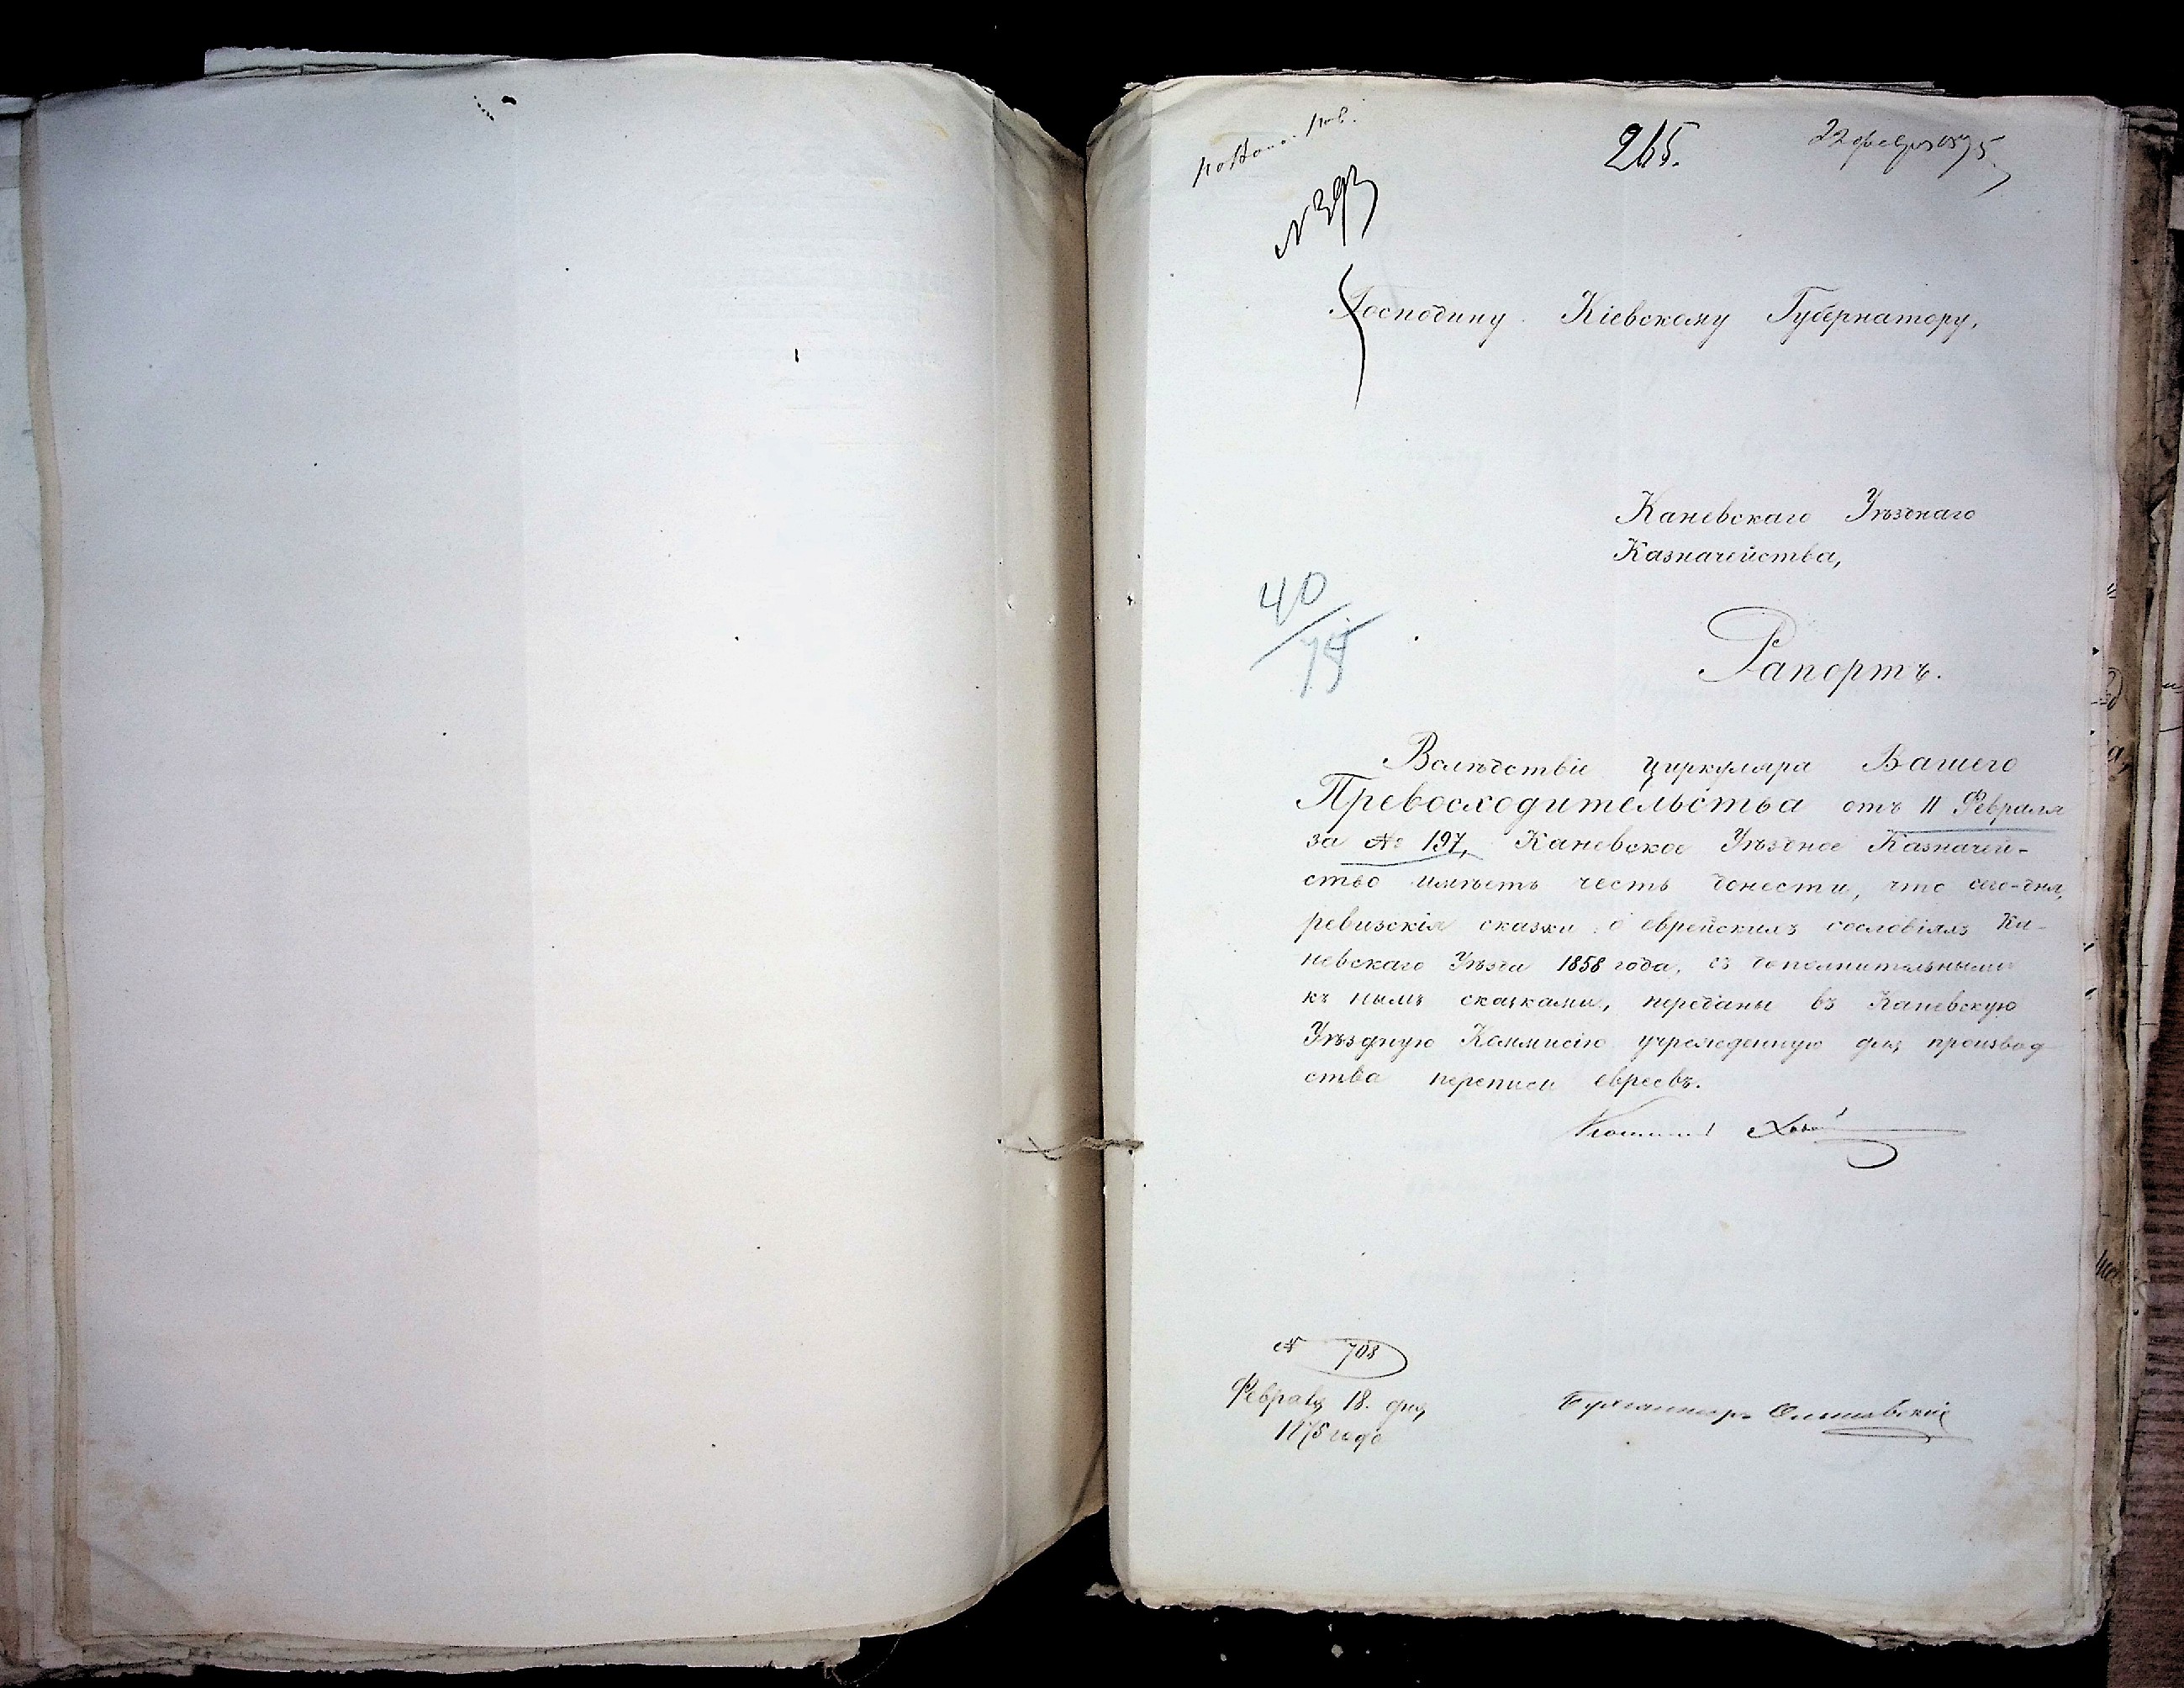 265.
22 февр 1875
№ 393
Господину Кіевскому Губернатору,
Каневскаго Уѣзднаго
Казначейства,
40/75
Рапортъ.
Вслѣдствіе циркуляра Вашего
Превосходительства отъ 11 Февраля
за № 197, Каневское Уѣздное Казначей-
ство имѣетъ честь донести, что сего-дня,
ревизскія сказки о еврейскихъ сословіяхъ Ка-
невскаго Уѣзда 1858 года, съ дополнительными
къ нимъ сказками, переданы въ Каневскую
Уѣздную Коммисію учрежденную для производ
ства переписи евреевъ.
№ 703
Февраля 18. дня
1875 года
Бухгалтеръ